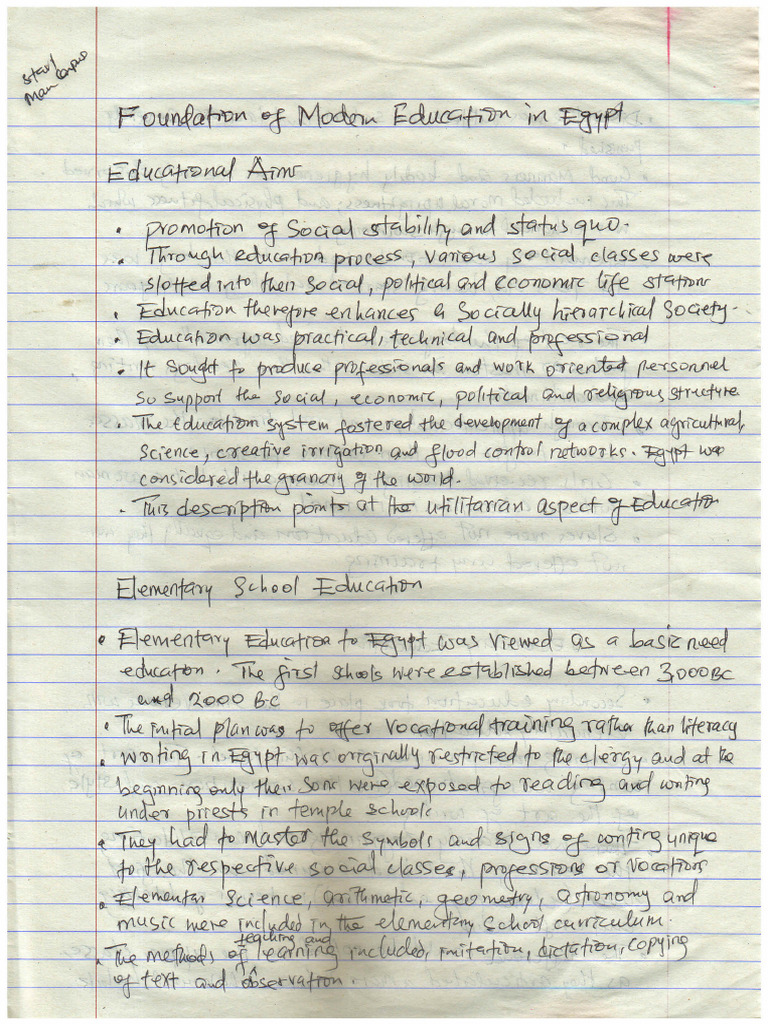 Start
Main Campus
Foundation of Modern Education in Egypt
Educational Aims
• promotion of Social stability and status quo.
• Through education process, various social classes were
slotted into their social, political and economic life stations
• Education therefore enhances a socially hierarchical Society.
• Education was practical, technical and professional
• It sought to produce professionals and work oriented personnel
so support the social, economic, political and religious structure
• The Education system fostered the development of a complex agricultural,
science, creative irrigation and flood control networks. Egypt was
considered the granary of the world.
• This description points at the utilitarian aspect of Education
Elementary School Education
• Elementary Education to Egypt was viewed as a basic need
education. The first schools were established between 3,000BC
and 2000 BC
• The initial plan was to offer vocational training rather than literacy
• Writing in Egypt was originally restricted to the clergy and at the
beginning only their sons were exposed to reading and writing
under priests in temple schools
• They had to master the symbols and signs of writing unique
to the respective social classes, professions or vocations
• Elementar Science, arithmetic, geometry, astronomy and
music were included in the elementary school curriculum.
teaching and
• The methods of learning included, imitation, dictation, copying
of text and observation.